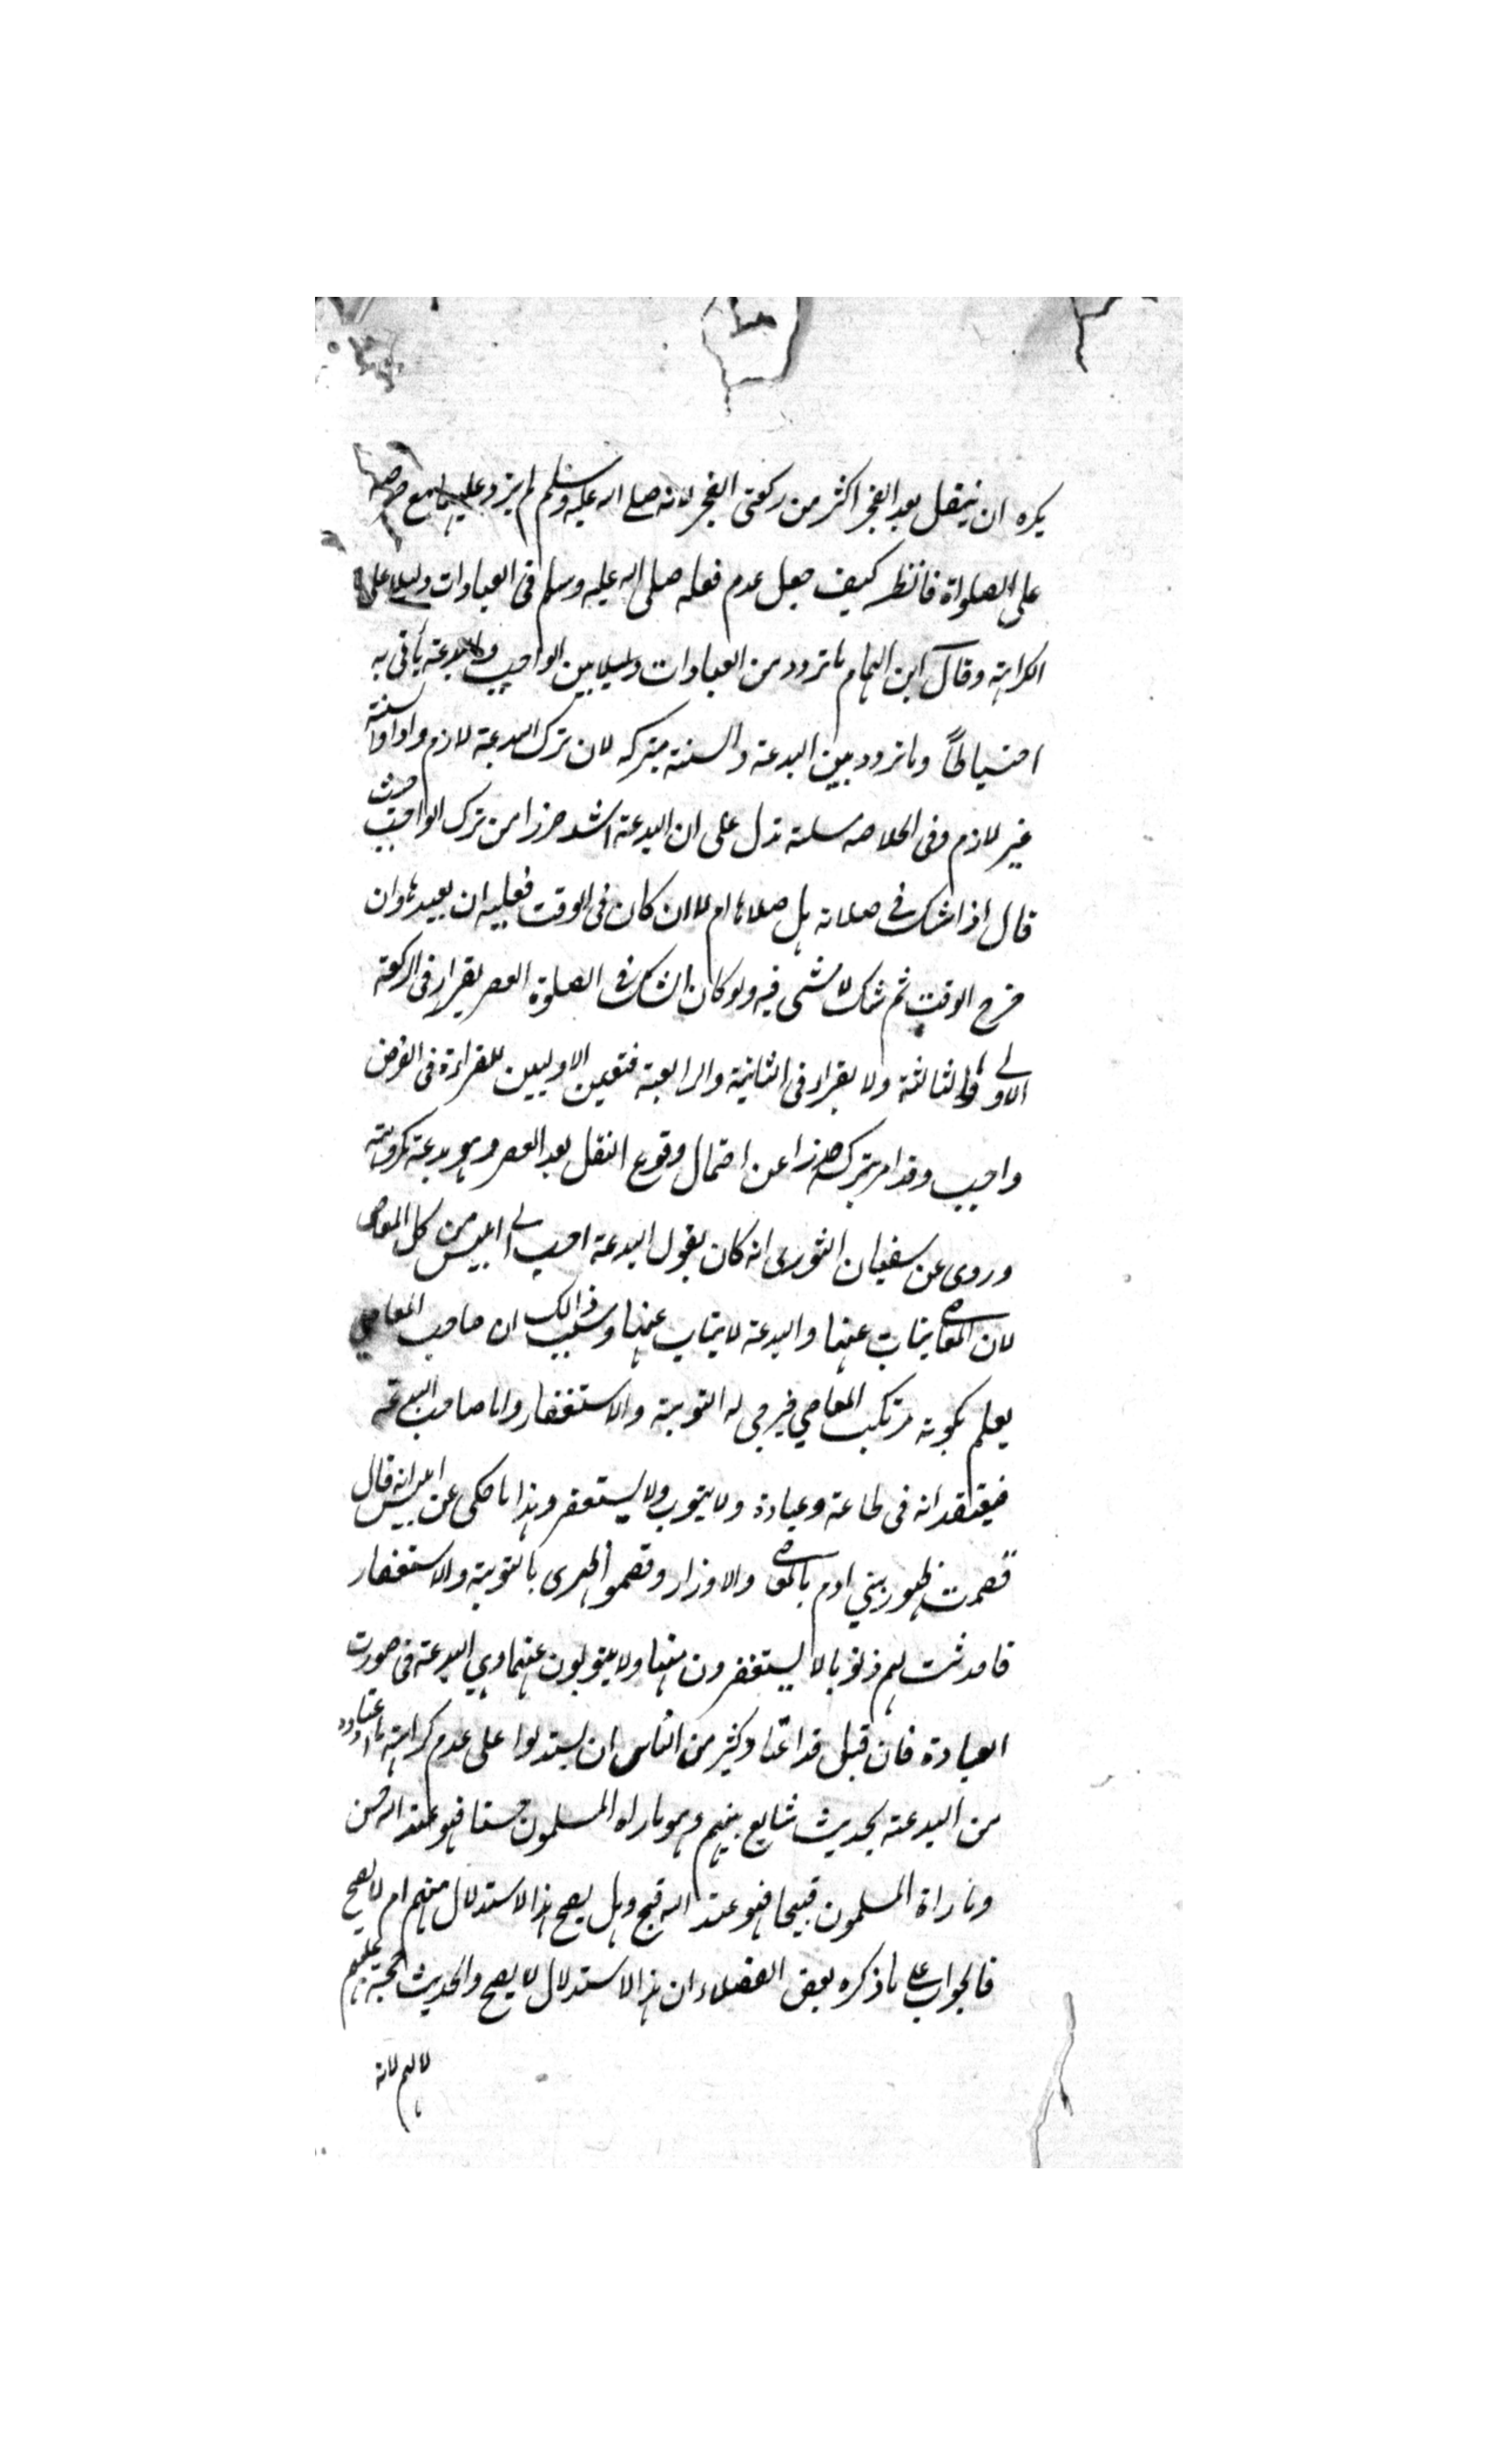 يكره ان يتنفل بعد الفجر اكثر من ركعتى الفجر لانه صلى الله عليه وسلم لم يزد عليهما مع حرصه
على الصلواة فانظر كيف جعل عدم فعله صلى الله عليه وسلم فى العبادات دليلا على
الكراهة وقال ابن الهمام ما تردد من العبادات دليلا بين الواجب والبدعة يأتى به
احتياطاً وما تردد بين البدعة والسنة يتركه لان ترك البدعة لازم واداء السنة
غير لازم وفى الخلاصه مسلة تدل على ان البدعة اشد ضررا من ترك الواجب حيث
قال اذا شك فى صلاته هل صلاها ام لا ان كان فى الوقت فعليه ان يعيدها وان
خرج الوقت ثم شك لا شى فيه ولو كان الشك فى الصلوة العصر يقراء فى الركعة
الاولى والثالثة ولا يقراء فى الثانية والرابعة فتعين الاوليين للقراءة فى الفرض
واجب وقد امر بتركه حذرا عن احتمال وقوع النفل بعد العصر وهو بدعة مكروهة
وروى عن سفيان الثورى انه كان يقول البدعة احب الى ابليس من كل المعاصى
لان المعاصى يتاب عنها والبدعة لا يتاب عنها وسبب ذالك ان صاحب المعاصي
يعلم بكونه مرتكب المعاصي فيرجى له التوبة والاستغفار واما صاحب البدعة
فيعتقد انه فى طاعة وعبادة ولا يتوب ولا يستغفر وهذا ما حكى عن ابليس انه قال
قصمت ظهور بني ادم بالمعاصى والاوزار وقصموا ظهرى بالتوبة والاستغفار
فاحدثت لهم ذنوبا لا يستغفرون منها ولا يتوبون عنها وهي البدعة فى صورت
العبادة فان قيل قد اعتاد كثير من الناس ان يستدلوا على عدم كراهة ما اعتادوه
من البدعة بحديث شايع بينهم وهو ما راه المسلمون حسنا فهو عند الله حسن
وما راة المسلمون قبيحا فهو عند الله قبيح وهل يصح هذا الاستدلال منهم ام لا يصح
فالجواب على ما ذكره بعض الفضلاء ان هذا الاستدلال لا يصح والحديث حجة عليهم
لا لهم لانه